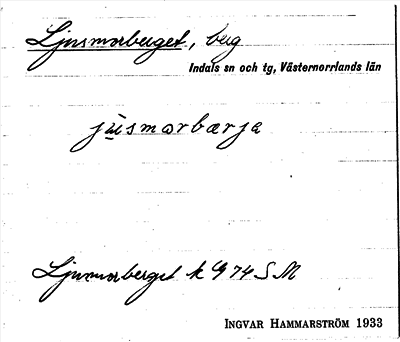 Ljusmorberget, berg
Indals sn och tg, Västernorrlands län
jùsmorbærja
Ljusmorberget k G 74 S M
INGVAR HAMMARSTRÖM 1933